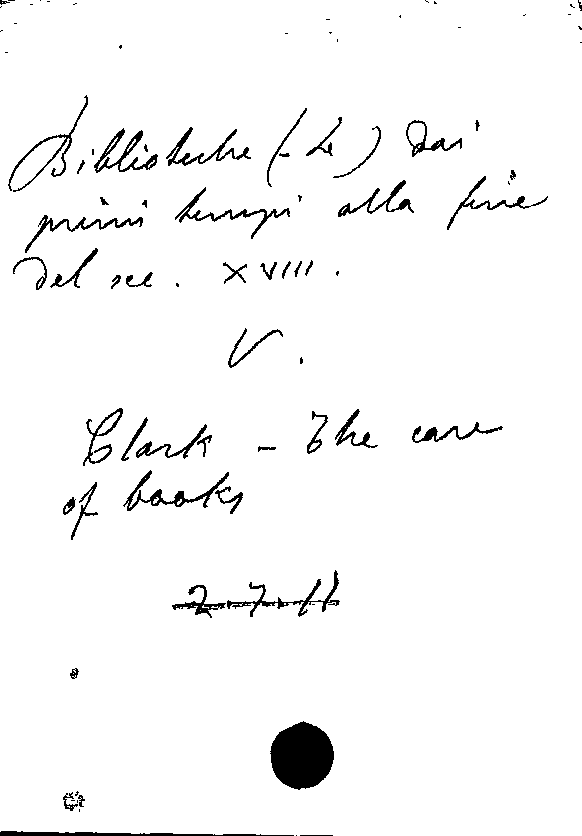 Biblioteche (- Le) dai
primi tempi alla fine
del sec. XVIII.
V.
Clark - The care
of books
2.7.11